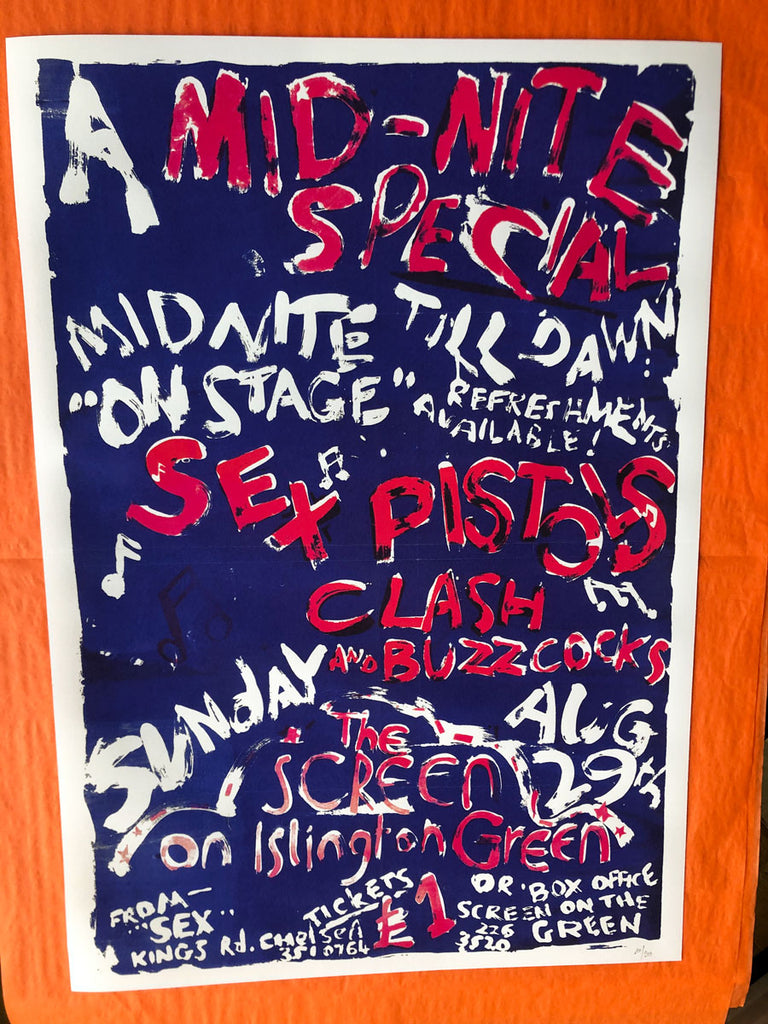 A MID-NITE
SPECIAL
MIDNITE TILL DAWN!
"ON STAGE" REFRESHMENTS
AVAILABLE!
SEX PISTOLS
CLASH
AND BUZZCOCKS
SUNDAY AUG
29th
The
SCREEN
on Islington Green
FROM—
"SEX"
KINGS Rd. Chelsea
351 0764
TICKETS
£1
OR BOX OFFICE
SCREEN ON THE
GREEN
226
3520